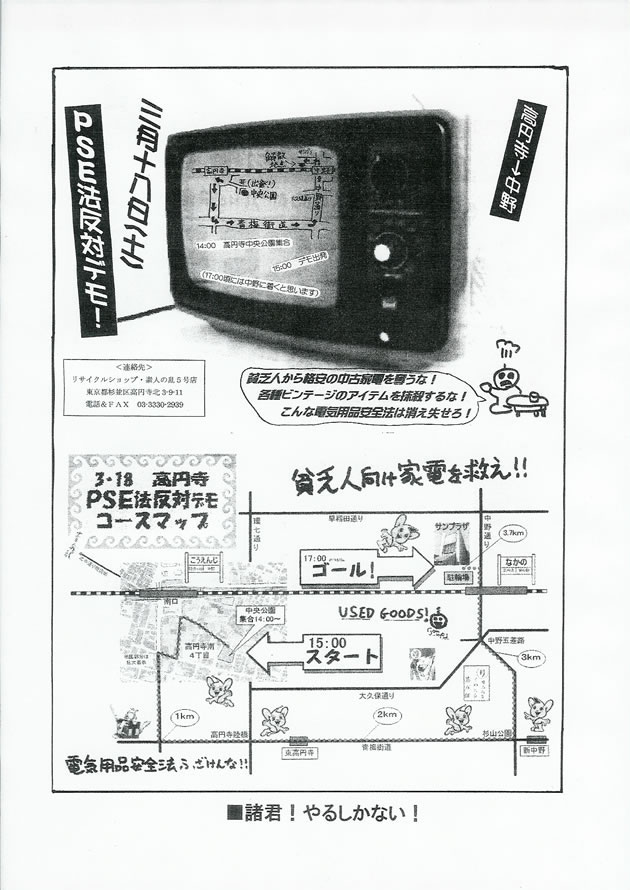 PSE法反対デモ！
三月十八日(土)
高円寺→中野
高円寺
中央公園
青梅街道
14:00 高円寺中央公園集合
15:00 デモ出発
(17:00頃には中野に着くと思います)
＜連絡先＞
リサイクルショップ・素人の乱５号店
東京都杉並区高円寺北3-9-11
電話＆ＦＡＸ 03-3330-2939
貧乏人から格安の中古家電を奪うな！
各種ビンテージのアイテムを抹殺するな！
こんな電気用品安全法は消え失せろ！
3・18 高円寺
PSE法反対デモ
コースマップ
貧乏人向け家電を救え!!
環七通り
早稲田通り
中野通り
サンプラザ
3.7km
17:00
ゴール！
駐輪場
こうえんじ
なかの
南口
中央公園
集合14:00～
USED GOODS!
高円寺南
4丁目
15:00
スタート
中野五差路
3km
大久保通り
1km
2km
高円寺陸橋
東高円寺
青梅街道
杉山公園
新中野
電気用品安全法ふざけんな!!
■諸君！やるしかない！